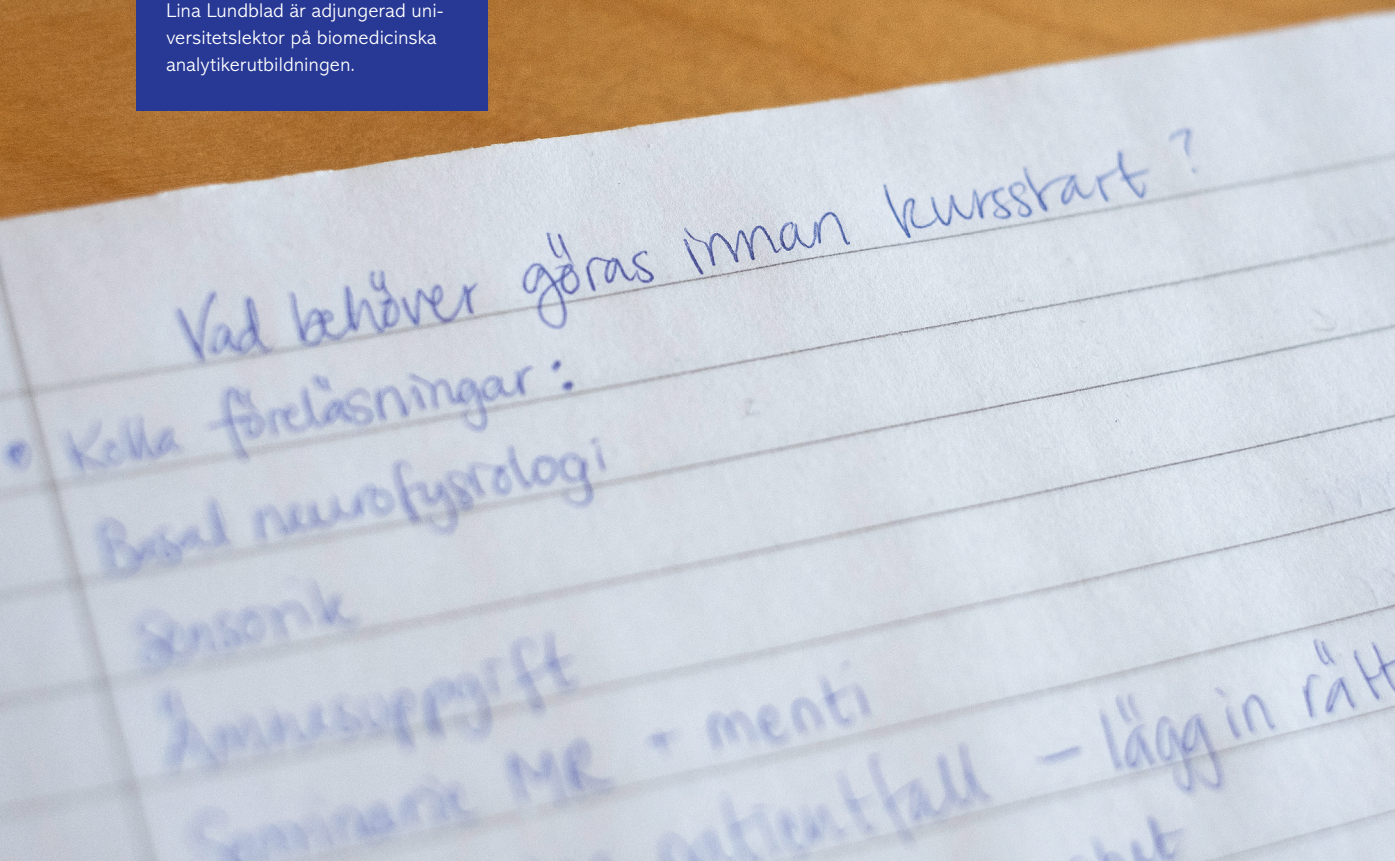 Lina Lundblad är adjungerad uni-
versitetslektor på biomedicinska
analytikerutbildningen.
Vad behöver göras innan kursstart?
• Kolla föreläsningar:
Basal neurofysiologi
Sensorik
Ämnesuppgift
Seminarie MR + menti
patientfall – lägg in rätt